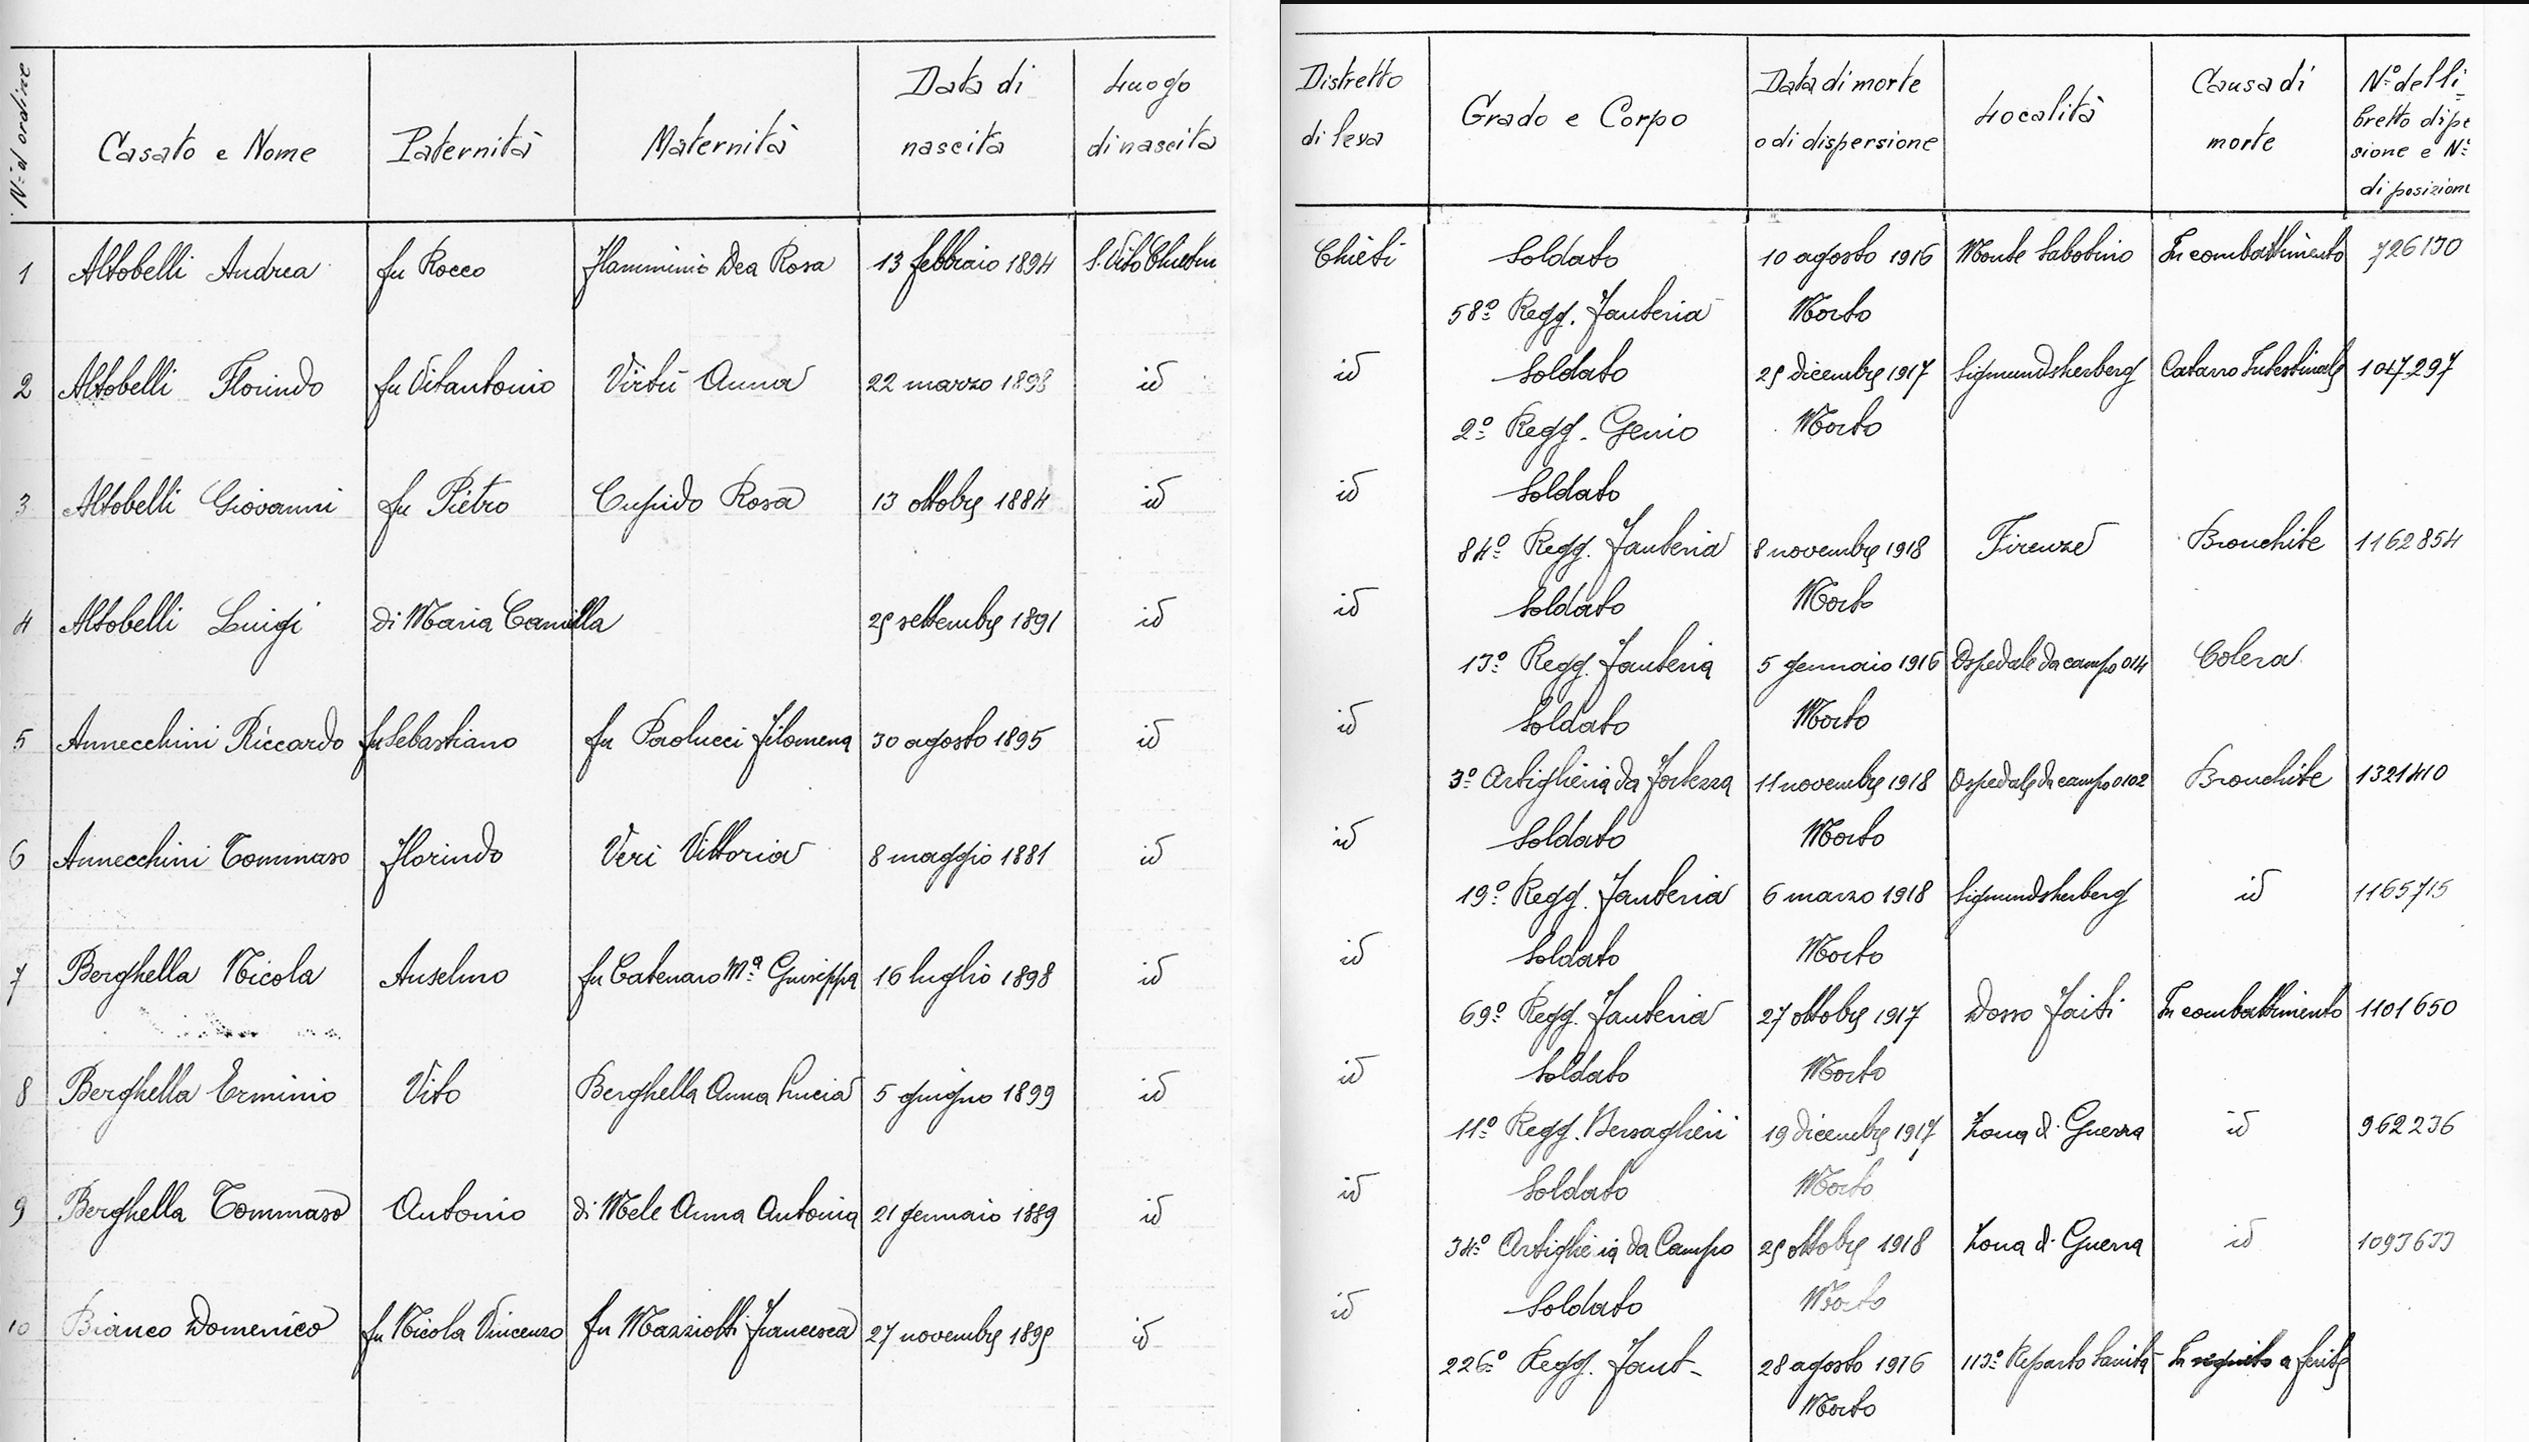 N.º d'ordine
Casato e Nome
Paternità
Maternità
Data di
nascita
Luogo
di nascita
Distretto
di leva
Grado e Corpo
Data di morte
o di dispersione
Località
Causa di
morte
Nº del li=
bretto di pe
sione e Nº
di posizione
1 Altobelli Andrea fu Rocco Flamminio Dea Rosa 13 febbraio 1894 S. Vito Chietin Chieti Soldato 10 agosto 1916 Monte Sabotino In combattimento 726130
58º Regg. Fanteria Morto
2 Altobelli Florindo fu Vitantonio Virtù Anna 22 marzo 1898 id id Soldato 25 dicembre 1917 Sigmundsherberg Catarro Intestinale 1047297
2º Regg. Genio Morto
3 Altobelli Giovanni fu Pietro Cupido Rosa 13 ottobre 1884 id id Soldato
84º Regg. Fanteria 8 novembre 1918 Firenze Bronchite 1162854
Morto
4 Altobelli Luigi di Maria Camilla 25 settembre 1891 id id Soldato
13º Regg. Fanteria 5 gennaio 1916 Ospedale da campo 014 Colera
Morto
5 Annecchini Riccardo fu Sebastiano fu Paolucci Filomena 30 agosto 1895 id id Soldato
3º Artiglieria da Fortezza 11 novembre 1918 Ospedale da campo 0102 Bronchite 1321410
Morto
6 Annecchini Tommaso Florindo Veri Vittoria 8 maggio 1881 id id Soldato
19º Regg. Fanteria 6 marzo 1918 Sigmundsherberg id 1165715
Morto
7 Berghella Nicola Anselmo fu Catenaro Mª Giuseppa 16 luglio 1898 id id Soldato
69º Regg. Fanteria 27 ottobre 1917 Dosso Faiti In combattimento 1101650
Morto
8 Berghella Erminio Vito Berghella Anna Lucia 5 giugno 1899 id id Soldato
11º Regg. Bersaglieri 19 dicembre 1917 Zona di Guerra id 962236
Morto
9 Berghella Tommaso Antonio di Mele Anna Antonia 21 gennaio 1889 id id Soldato
34º Artiglieria da Campo 25 ottobre 1918 Zona di Guerra id 1093633
Morto
10 Bianco Domenico fu Nicola Vincenzo fu Mazziotti Francesca 27 novembre 1895 id id Soldato
226º Regg. Fant- 28 agosto 1916 113º Reparto Sanità In seguito a ferite
Morto